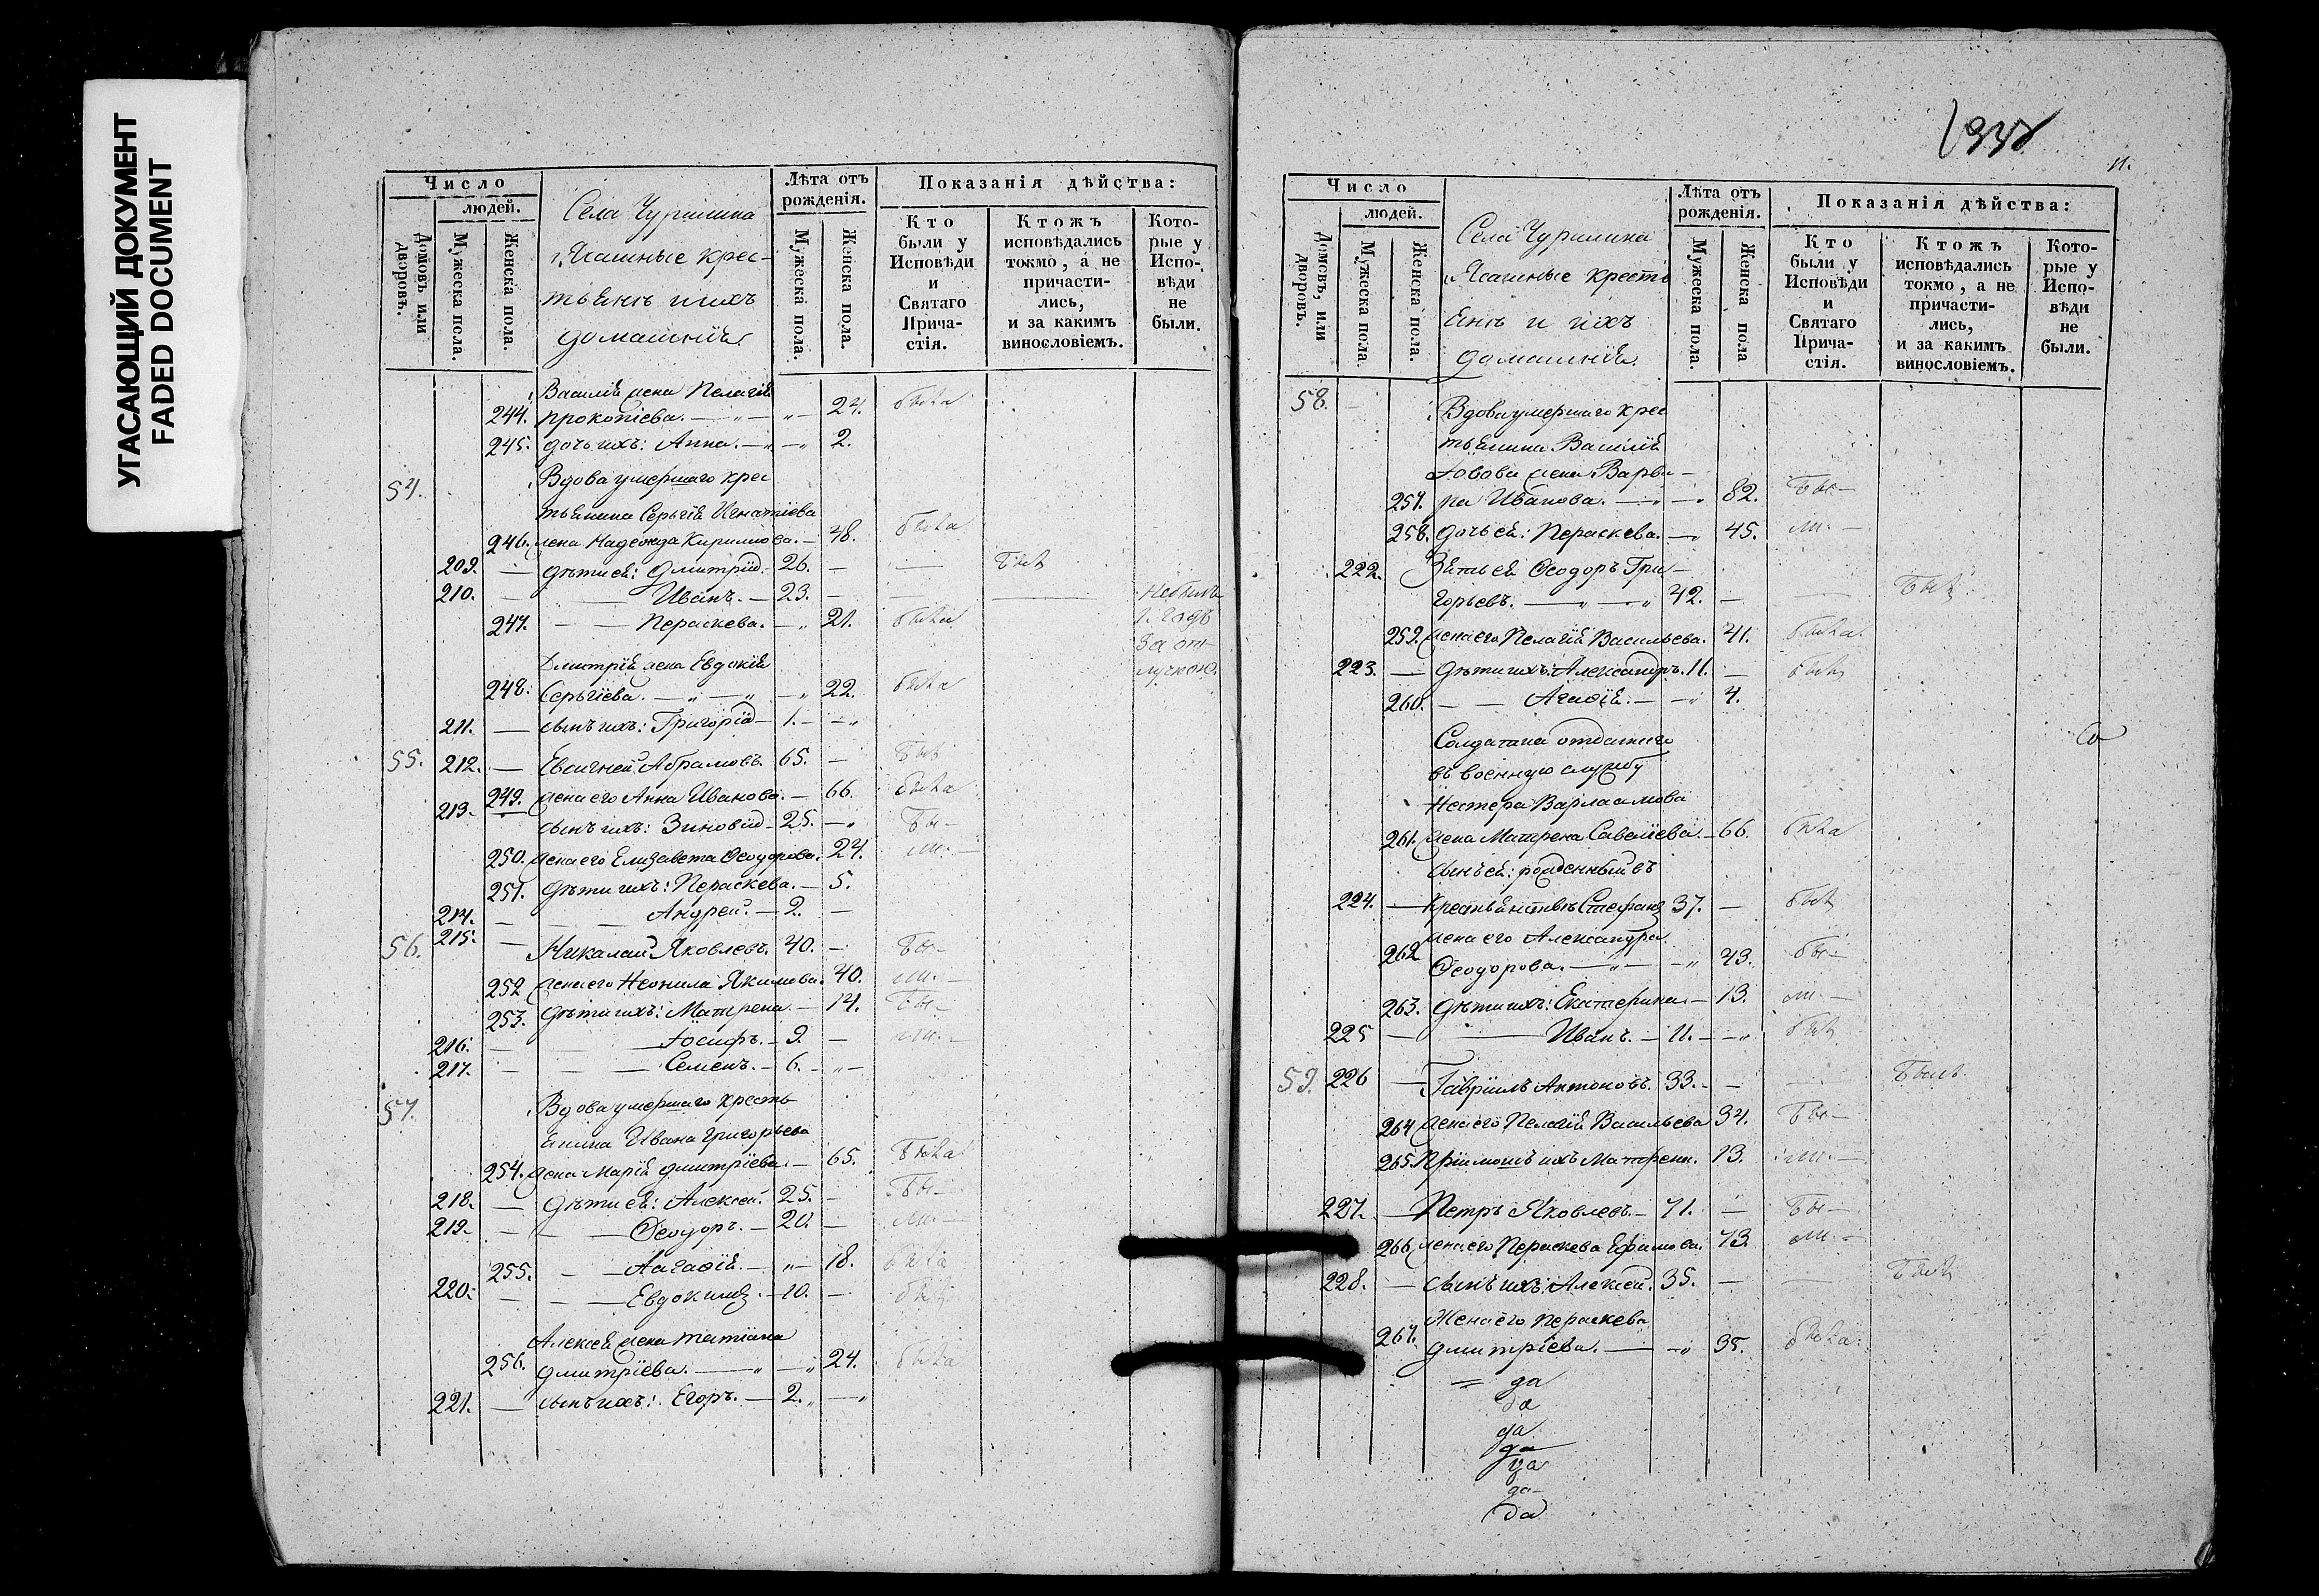 УГАСАЮЩИЙ ДОКУМЕНТ
FADED DOCUMENT
Число
людей.
Домовъ или дворовъ.
Мужеска пола.
Женска пола.
Села Чурилина
Ясашные крес-
тьянъ и ихъ
домашнія
Лѣта отъ рожденія.
Мужеска пола.
Женска пола.
Показанія дѣйства:
Кто были у Исповѣди и Святаго Прича-стія.
Ктожъ исповѣдались токмо, а не причасти-лись, и за какимъ винословіемъ.
Кото-рые у Испо-вѣди не были.
Василія жена Пелагія
244. Прокопіева. — 24. была
245. дочь ихъ: Анна. — 2.
54. Вдова умершаго крес
тьянина Сергія Игнатіева
246. жена Надежда Кирилова. — 48. была
209. — дѣти ея: Дмитрій. 26. — — былъ
210. — — Иванъ. — 23. — — небылъ
247. — — Параскева. — 21. была 1. годъ
за от-
лучкою.
Дмитрія жена Евдокія
248. Сергіева. — 22. была
211. — сынъ ихъ: Григорій — 1. —
55. 212. — Евсигней Абрамовъ. 65. — былъ
249. жена его Анна Иванова. — 66. была
213. — сынъ ихъ: Зиновій — 25. — бы-
250. жена его Елизавета Ѳеодорова. 24. ли. —
251. дѣти ихъ: Параскева. — 5.
214. — — Андрей. — 2. —
56. 215. — Николай Яковлевъ. 40. — бы-
252 жена его Неонила Якимова. 40. ли. —
253. дѣти ихъ: Матрена. — 14. бы-
216. — — Іосифъ. — 9. — ли. —
217. — — Семенъ. — 6. —
57. Вдова умершаго кресть
янина Ивана Григорьева
254. жена Марія Дмитріева. — 65. была
218. — дѣти ея: Алексей. 25. — бы-
219. — — Ѳеодоръ. — 20. — ли. —
255. — Агафія. — 18. была
220. — — Евдокимъ. — 10. — былъ
Алексея жена Татіана
256. Дмитріева. — 24. была
221. — сынъ ихъ: Егоръ. — 2. —
11.
Число
людей.
Домовъ, или дворовъ.
Мужеска пола
Женска пола.
Села Чурилина
Ясашные кресть
янъ и ихъ
домашнія.
Лѣта отъ рожденія.
Мужеска пола.
Женска пола
Показанія дѣйства:
Кто были у Исповѣди и Святаго Прича-стія.
Ктожъ исповѣдались токмо, а не причасти-лись, и за какимъ винословіемъ.
Кото-рые у Испо-вѣди не были.
58. Вдова умершаго крес
тьянина Василія
Іовова жена Варва-
257. ра Иванова. — 82. бы-
258. дочь ея: Параскева. — 45. ли. —
222. Зять ея Ѳеодоръ Гри-
горьевъ. — 42. — — былъ
259. жена его Пелагія Васильева. 41. была.
223. — дѣти ихъ: Александръ. 11. — былъ
260. — — Агафія. — 4.
Солдатка отданнаго
въ военную службу
Нестера Варлаамова
261. жена Матрена Савеліева. — 66. была
сынъ ея: рожденный въ
224. — крестьянствѣ Стефанъ 37. — былъ
жена его Александра
262 Ѳеодорова. — 43. бы-
263. дѣти ихъ: Екатерина. — 13. ли. —
225 — — Иванъ. — 11. — былъ
59. 226 — Гавріилъ Антоновъ. 33. — — былъ.
264 жена его Пелагія Васильева 34. бы-
265. Пріимышъ ихъ Матрена. 13. ли. —
227. — Петръ Яковлевъ. — 71. — бы-
266. жена его Параскева Ефимова. 73. ли. —
228. — сынъ ихъ: Алексей. 35. — — былъ
Жена его Параскева
267. Дмитріева. — 35. была.
да
да
да
да
да
да
да